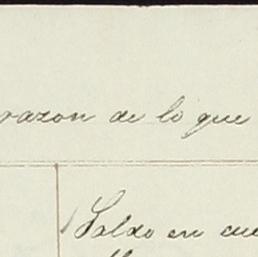 razon de lo que
Saldo en cue